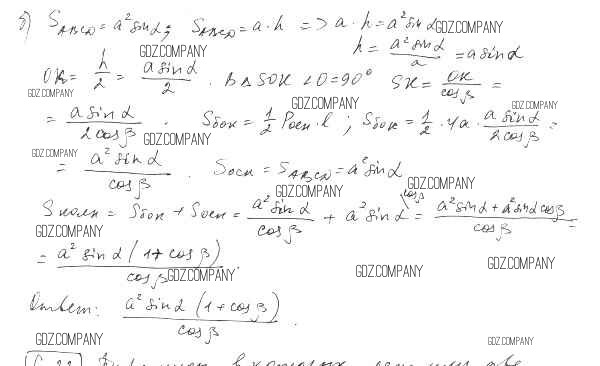 б) S_ABCD = a² sin α; S_ABCD = a · h => a · h = a² sin α GDZ.COMPANY
GDZ.COMPANY h = a² sin α / a = a sin α
OK = h/2 = a sin α / 2. В Δ SOK ∠O = 90° SK = OK / cos β =
GDZ.COMPANY GDZ.COMPANY GDZ.COMPANY
= a sin α / 2 cos β. Sбок = 1/2 Pосн · l; Sбок = 1/2 · 4a · a sin α / 2 cos β =
GDZ.COMPANY
GDZ.COMPANY
= a² sin α / cos β. Sосн = S_ABCD = a² sin α
GDZ.COMPANY GDZ.COMPANY
Sполн = Sбок + Sосн = a² sin α / cos β + a² sin α \cos β = a² sin α + a² sin α cos β / cos β =
GDZ.COMPANY
= a² sin α (1 + cos β) / cos β. GDZ.COMPANY GDZ.COMPANY GDZ.COMPANY
Ответ: a² sin α (1 + cos β) / cos β.
GDZ.COMPANY GDZ.COMPANY